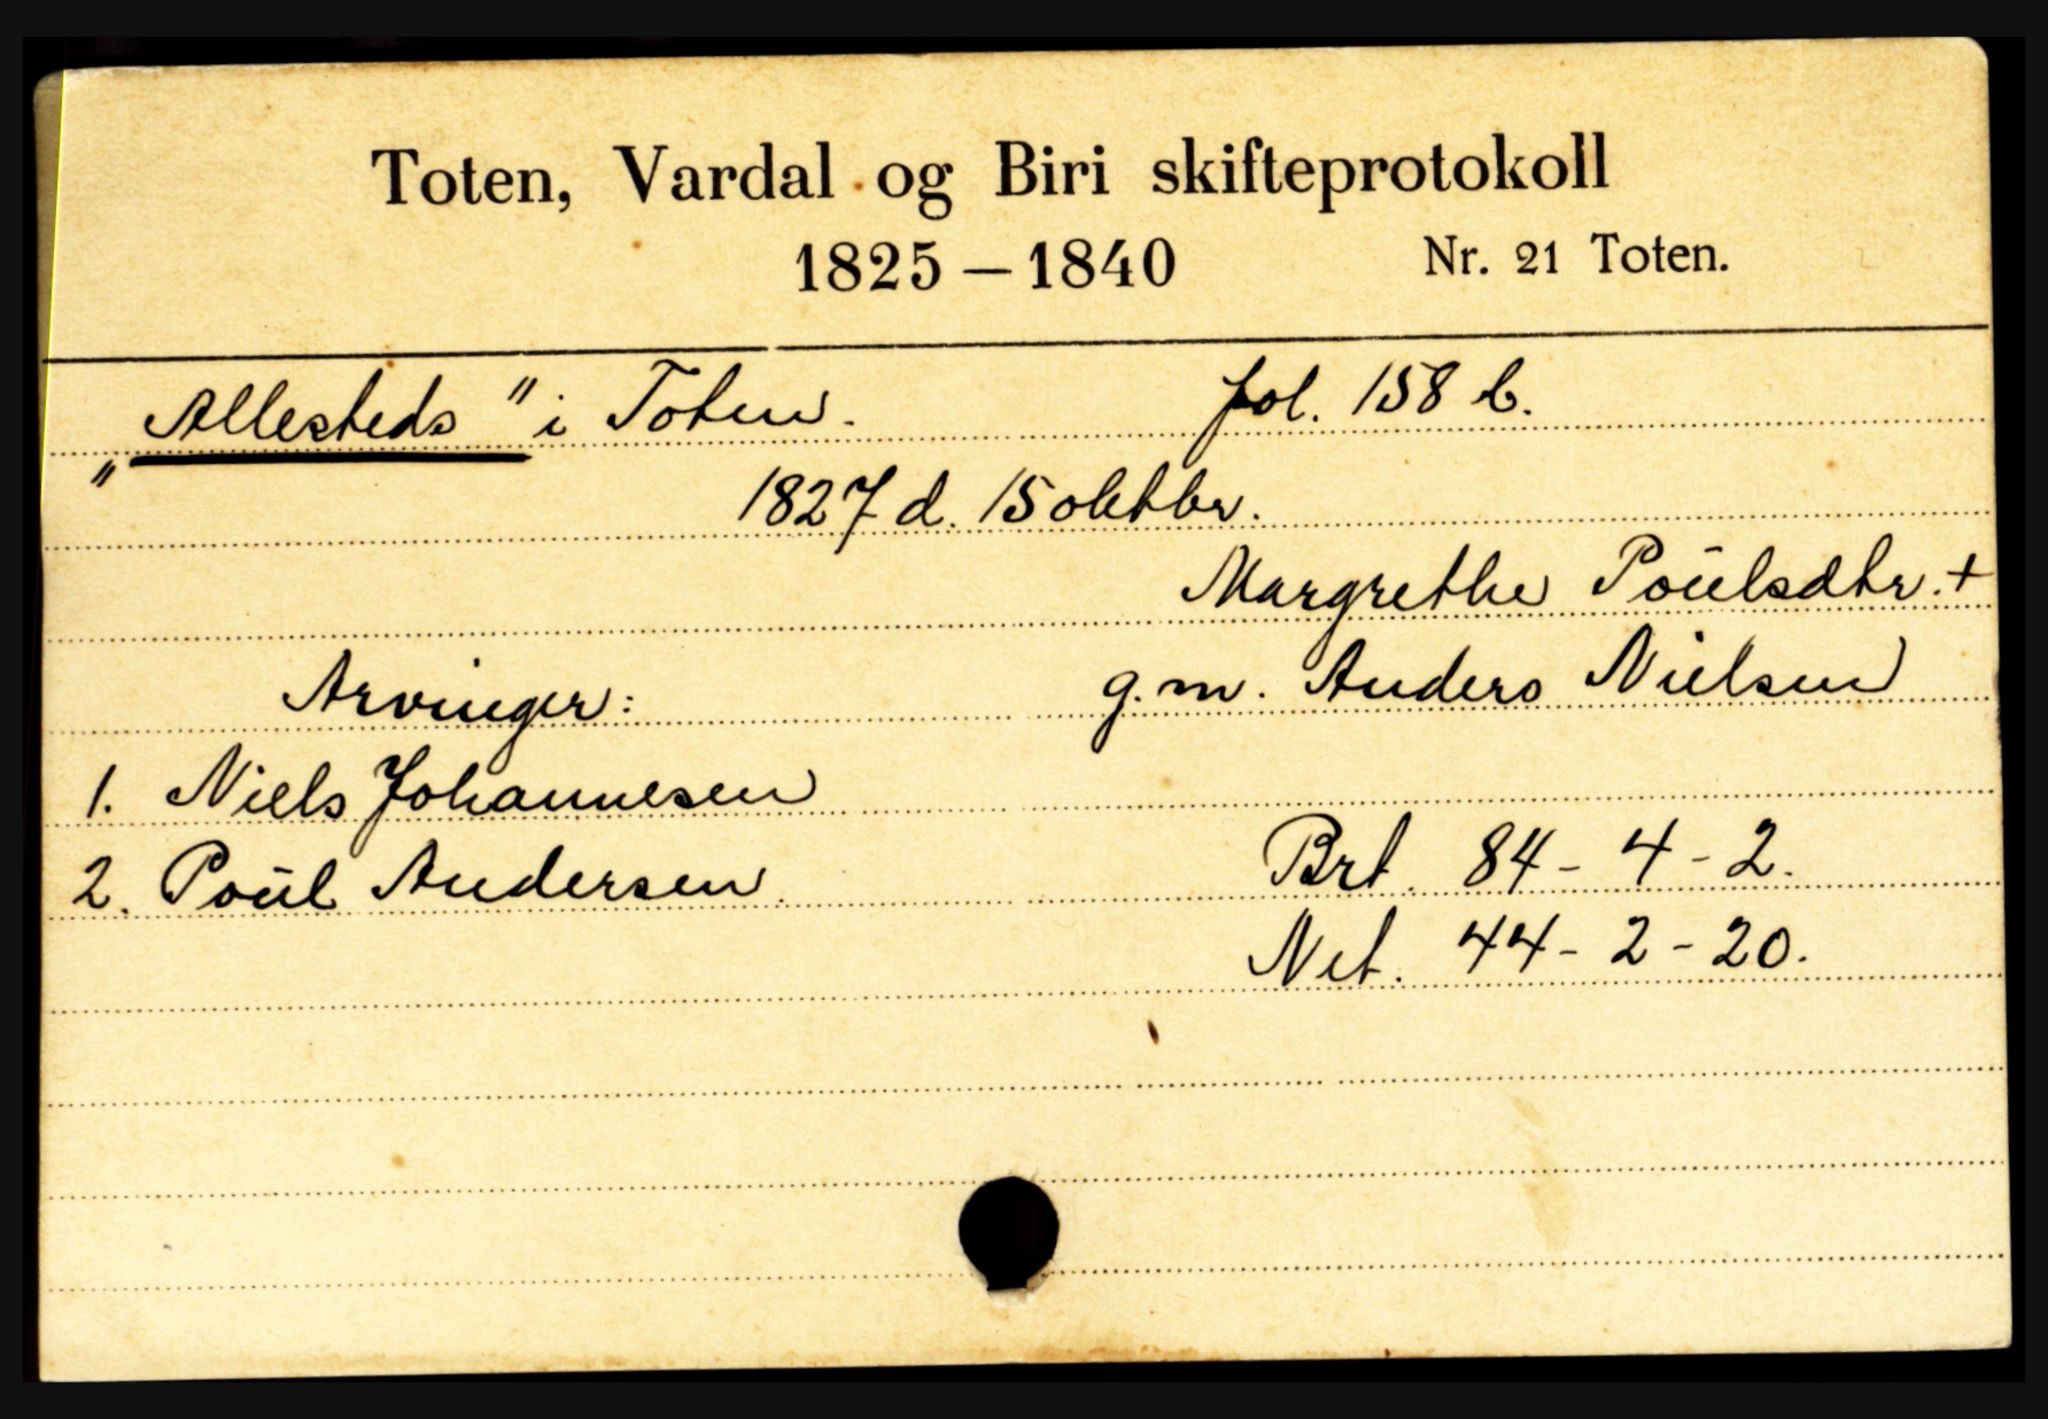 Toten, Vardal og Biri skifteprotokoll
1825 – 1840 Nr. 21 Toten.
"Allesteds" i Toten. fol. 158 b.
1827 d. 15 oktbr.
Margrethe Poŭlsdtr. +
Arvinger: g.m. Anders Nielsen
1. Niels Johannesen
2. Poŭl Andersen. Brt. 84 - 4 - 2.
Net. 44 - 2 - 20.